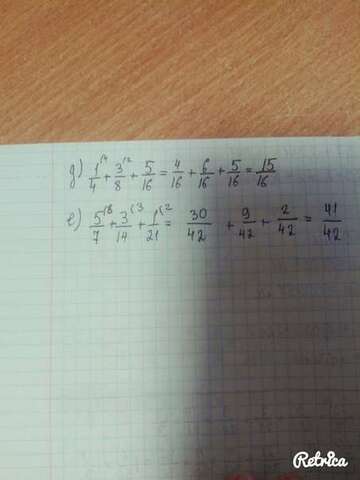 д) 1/4 (4 + 3/8 (2 + 5/16 = 4/16 + 6/16 + 5/16 = 15/16
е) 5/7 (8 + 3/14 (3 + 1/21 (2 = 30/42 + 9/42 + 2/42 = 41/42
Retrica